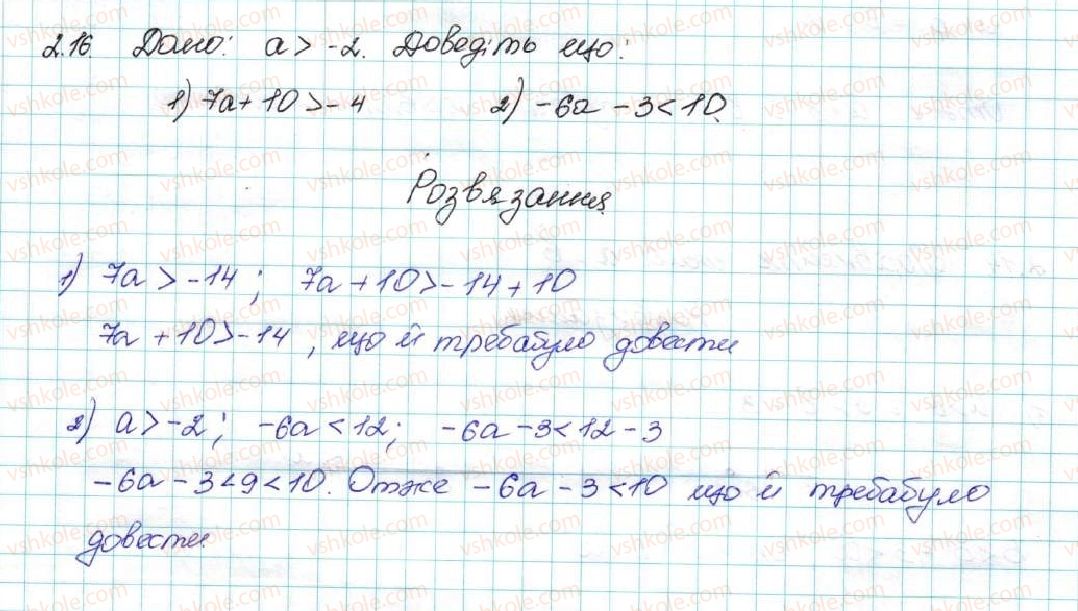 2.16. Дано: a > -2. Доведіть що:
1) 7a + 10 > - 4 2) -6a - 3 < 10.
Розвязання
1) 7a > -14; 7a + 10 > -14 + 10
7a + 10 > -14, що й требабуло довести
2) a > -2; -6a < 12; -6a - 3 < 12 - 3
-6a - 3 < 9 < 10. Отже -6a - 3 < 10 що й требабуло
довести